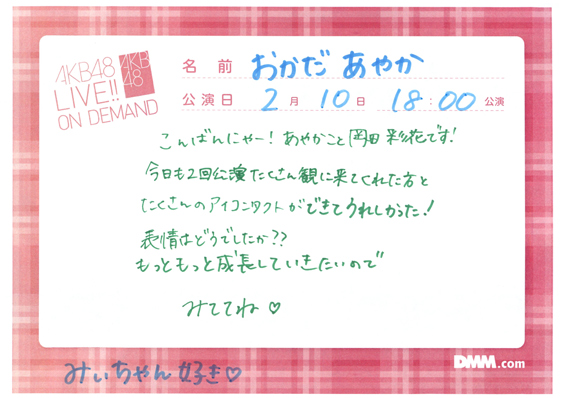 AKB48
LIVE!!
ON DEMAND
AKB
48
名前 おかだ あやか
公演日 2月10日 18:00公演
こんばんにゃー！あやかこと岡田彩花です！
今日も2回公演たくさん観に来てくれた方と
たくさんのアイコンタクトができてうれしかった！
表情はどうでしたか??
もっともっと成長していきたいので
みててね♡
DMM.com
みぃちゃん好き♡